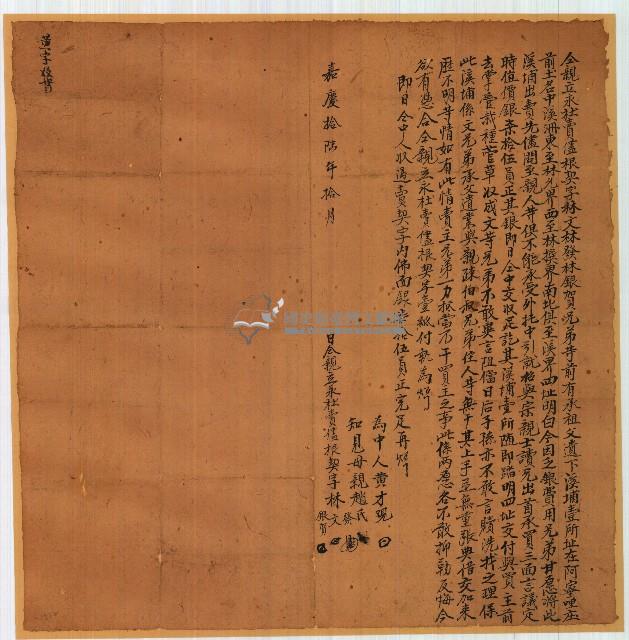 仝親立永杜賣儘根契字林文林發林銀賀兄弟等前有承祖父遺下溪埔壹所址在阿寥哩庄
前土名中溪洲東至林允界西至林撰界南北俱至溪界四址明白今因乏銀費用兄弟甘愿將此
溪埔出賣先儘問至親人等俱不能承受外托中引就招與宗親士讀兄出首承買三面言議定
時值價銀柒拾伍員正其銀即日仝中交收足訖其溪埔壹所隨即踏明四址交付與買主前
去掌管栽種菅草收成文等兄弟不敢異言阻擋日后子孫亦不敢言贖洗找之理保
此溪埔係文兄弟承父遺業與親疎伯叔兄弟侄人等無干其上手至無重張典借交加來
歷不明等情如有此情賣主兄弟一力抵當不干買主之事此係兩愿各不敢抑勒反悔今
欲有憑合仝親立永杜賣儘根契字壹紙付執為炤
即日仝中人收過賣契字內佛面銀柒拾伍員正完足再炤
為中人黃才觀
知見母親趙氏
嘉慶拾陸年拾月 日仝親立永杜賣儘根契字林文 發 銀賀